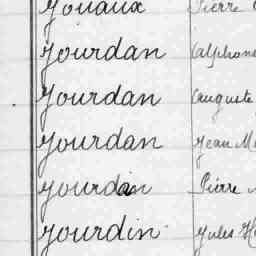 Jouaux Pierre
Jourdan Alphons
Jourdan Auguste
Jourdan Jean M
Jourdan Pierre
Jourdin Jules H